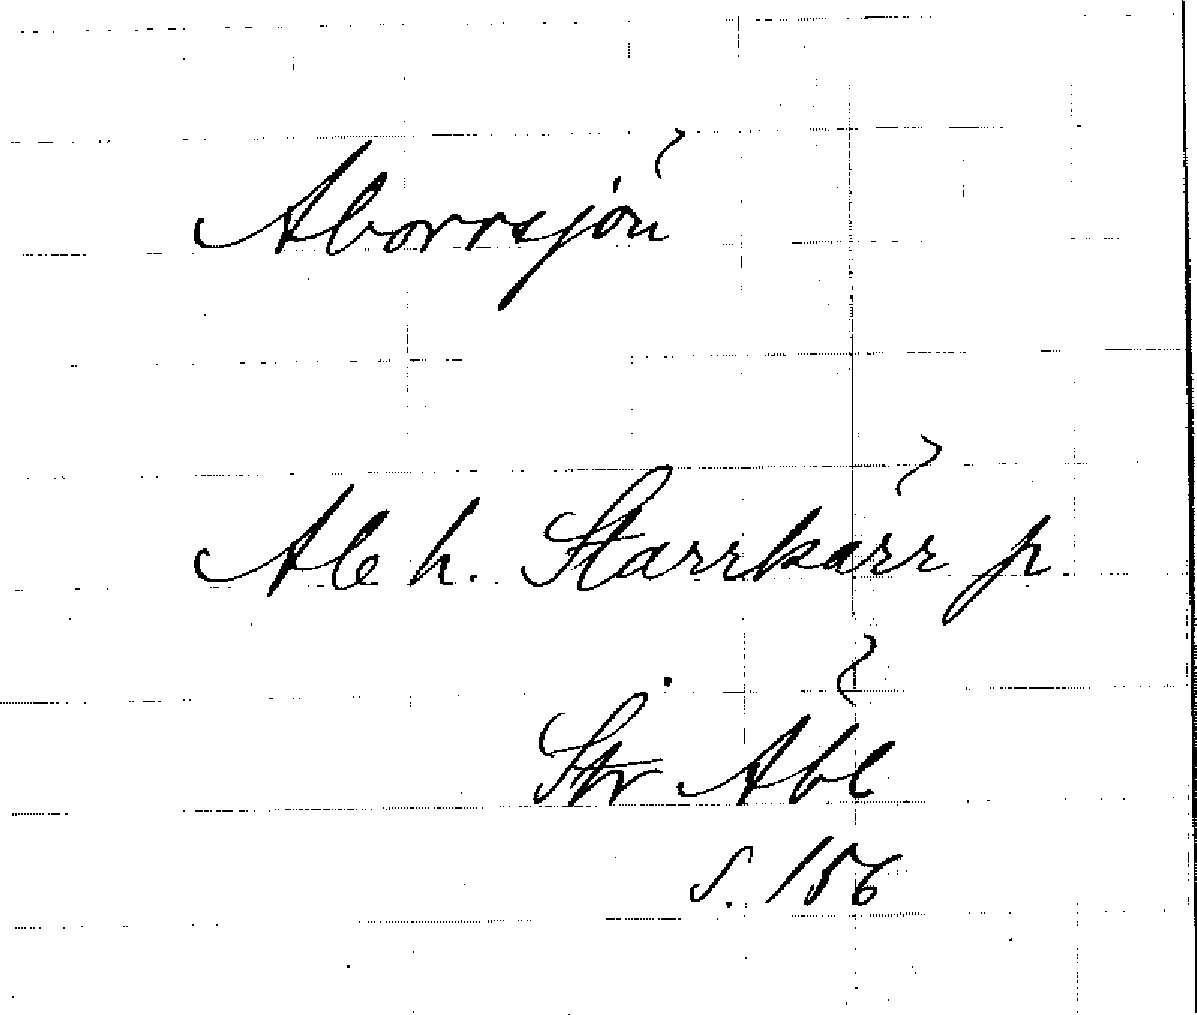 Aborrsjön
Ale h. Starrkärr p
Str Abl
s. 156